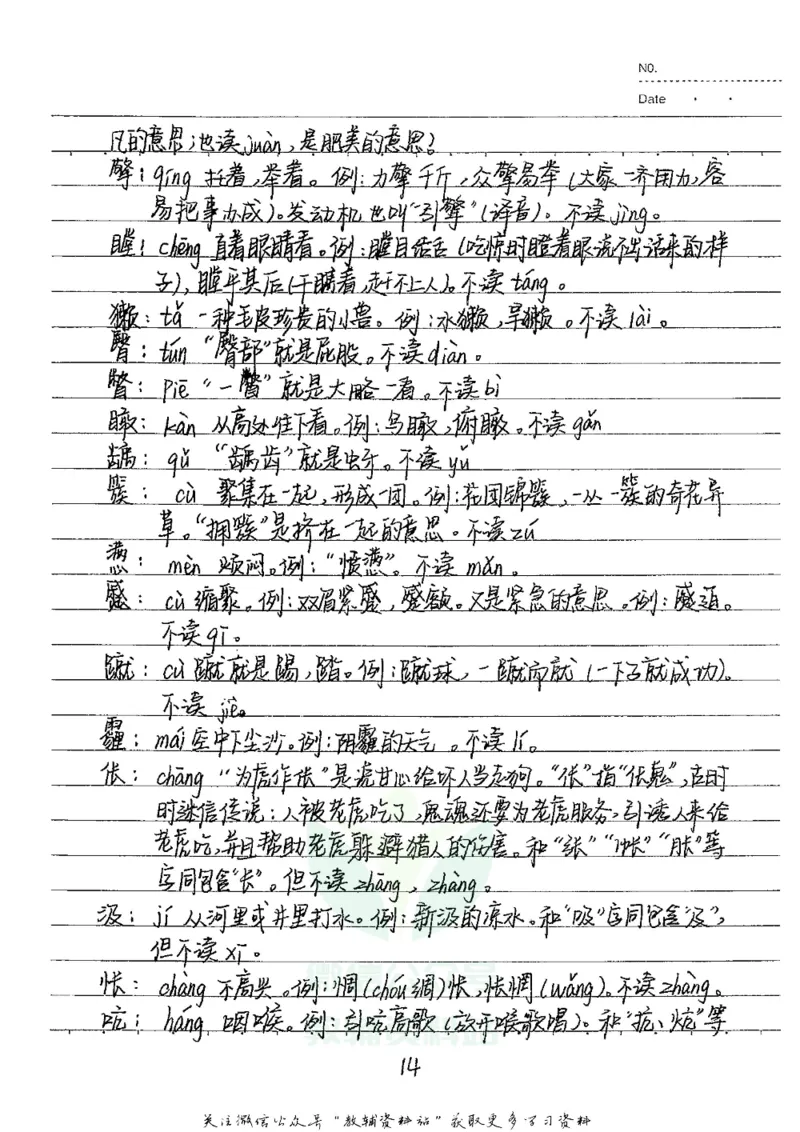 NO.
Date
凡的意思;也读juàn,是肥美的意思?
擎:qíng 托着,举着。例:力擎千斤,众擎易举(大家一齐用力,容
易把事办成)。发动机也叫“引擎”(译音)。不读jìng。
瞠:chēng 直着眼睛看。例:瞠目结舌(吃惊时瞪着眼说不出话来的样
子),瞠乎其后(干瞒着,赶不上人)。不读táng。
獭:tǎ 一种毛皮珍贵的小兽。例:水獭,旱獭。不读lài。
臀:tún “臀部”就是屁股。不读diàn。
瞥:piē “一瞥”就是大略一看。不读bì
瞰:kàn 从高处往下看。例:鸟瞰,俯瞰。不读gǎn
龋:qǔ “龋齿”就是虫牙。不读yǔ
簇:cù 聚集在一起,形成一团。例:花团锦簇,一丛一簇的奇花异
草。“拥簇”是挤在一起的意思。不读zú
懑:mèn 烦闷。例:“愤懑”。不读mǎn。
蹙:cù 缩聚。例:双眉紧蹙,蹙额。又是紧急的意思。例:蹙迫。
不读qī。
蹴:cù 蹴就是踢,踏。例:蹴球,一蹴而就(一下子就成功)。
不读jiè。
霾:mái 空中下尘沙。例:阴霾的天气。不读lí。
伥:chāng “为虎作伥”是说甘心给坏人当走狗。“伥”指“伥鬼”,古时
时迷信传说:人被老虎吃了,鬼魂还要为老虎服务,引诱人来给
老虎吃,并且帮助老虎躲避猎人的伤害。和“张”“帐”“胀”等
字同包含“长”。但不读zhāng,zhàng。
汲:jí 从河里或井里打水。例:新汲的凉水。和“吸”字同包含“及”,
但不读xī。
怅:chàng 不高兴。例:惆(chóu绸)怅,怅惘(wǎng)。不读zhàng。
吭:háng 咽喉。例:引吭高歌(放开喉歌唱)。和“抗、炕”等
14
关注微信公众号“教辅资料站”获取更多学习资料